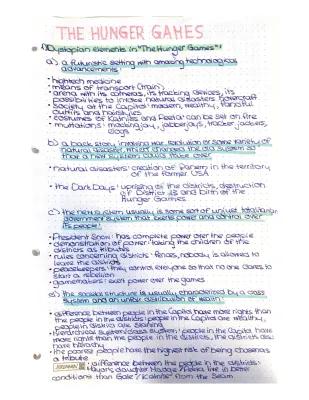 THE HUNGER GAMES
1) Dystopian elements in "The Hunger Games":
a) a futuristic setting with amazing technological
advancements
• hightech medicine
• means of transport (train)
• arena with its cameras, its tracking devices, its
possibilities to imitate natural disasters, hovercraft
• society at the Capitol: modern, wealthy, fanciful
outfits and hairstyles
• costumes of Katniss and Peeta: can be set on fire
• mutations: mockingjay, jabberjays, tracker jackers,
dogs
b) a back story involving war, revolution or some variety of
natural disaster that changed the old system so
that a new system could take over
• natural disasters: creation of Panem in the territory
of the former USA
• the Dark Days: uprising of the districts, destruction
of District 13 and birth of the
Hunger Games
c) the new system usually is some sort of totalitarian
government system that exerts power and control over
its people
• President Snow: has complete power over the people
• demonstration of power: taking the children of the
districts as tributes
• rules concerning districts: fences, nobody is allowed to
leave the districts
• peacekeepers: they control everyone so that no one dares to
start a rebellion
• gamemakers: exert power over the games
d) the societal structure is usually characterized by a class
system and an unfair distribution of wealth
• difference between people in the Capitol have more rights than
the people in the districts: people in the Capitol are wealthy,
people in district are starving
• hierarchical system/class system: people in the Capitol have
more rights than the people in the districts, the districts also
have hierarchy
• the poorest people have the highest risk of being chosen as
a tribute
• difference between people in the districts:
Mayor's daughter Madge / Peeta live in better
conditions than Gale / Katniss from the Seam